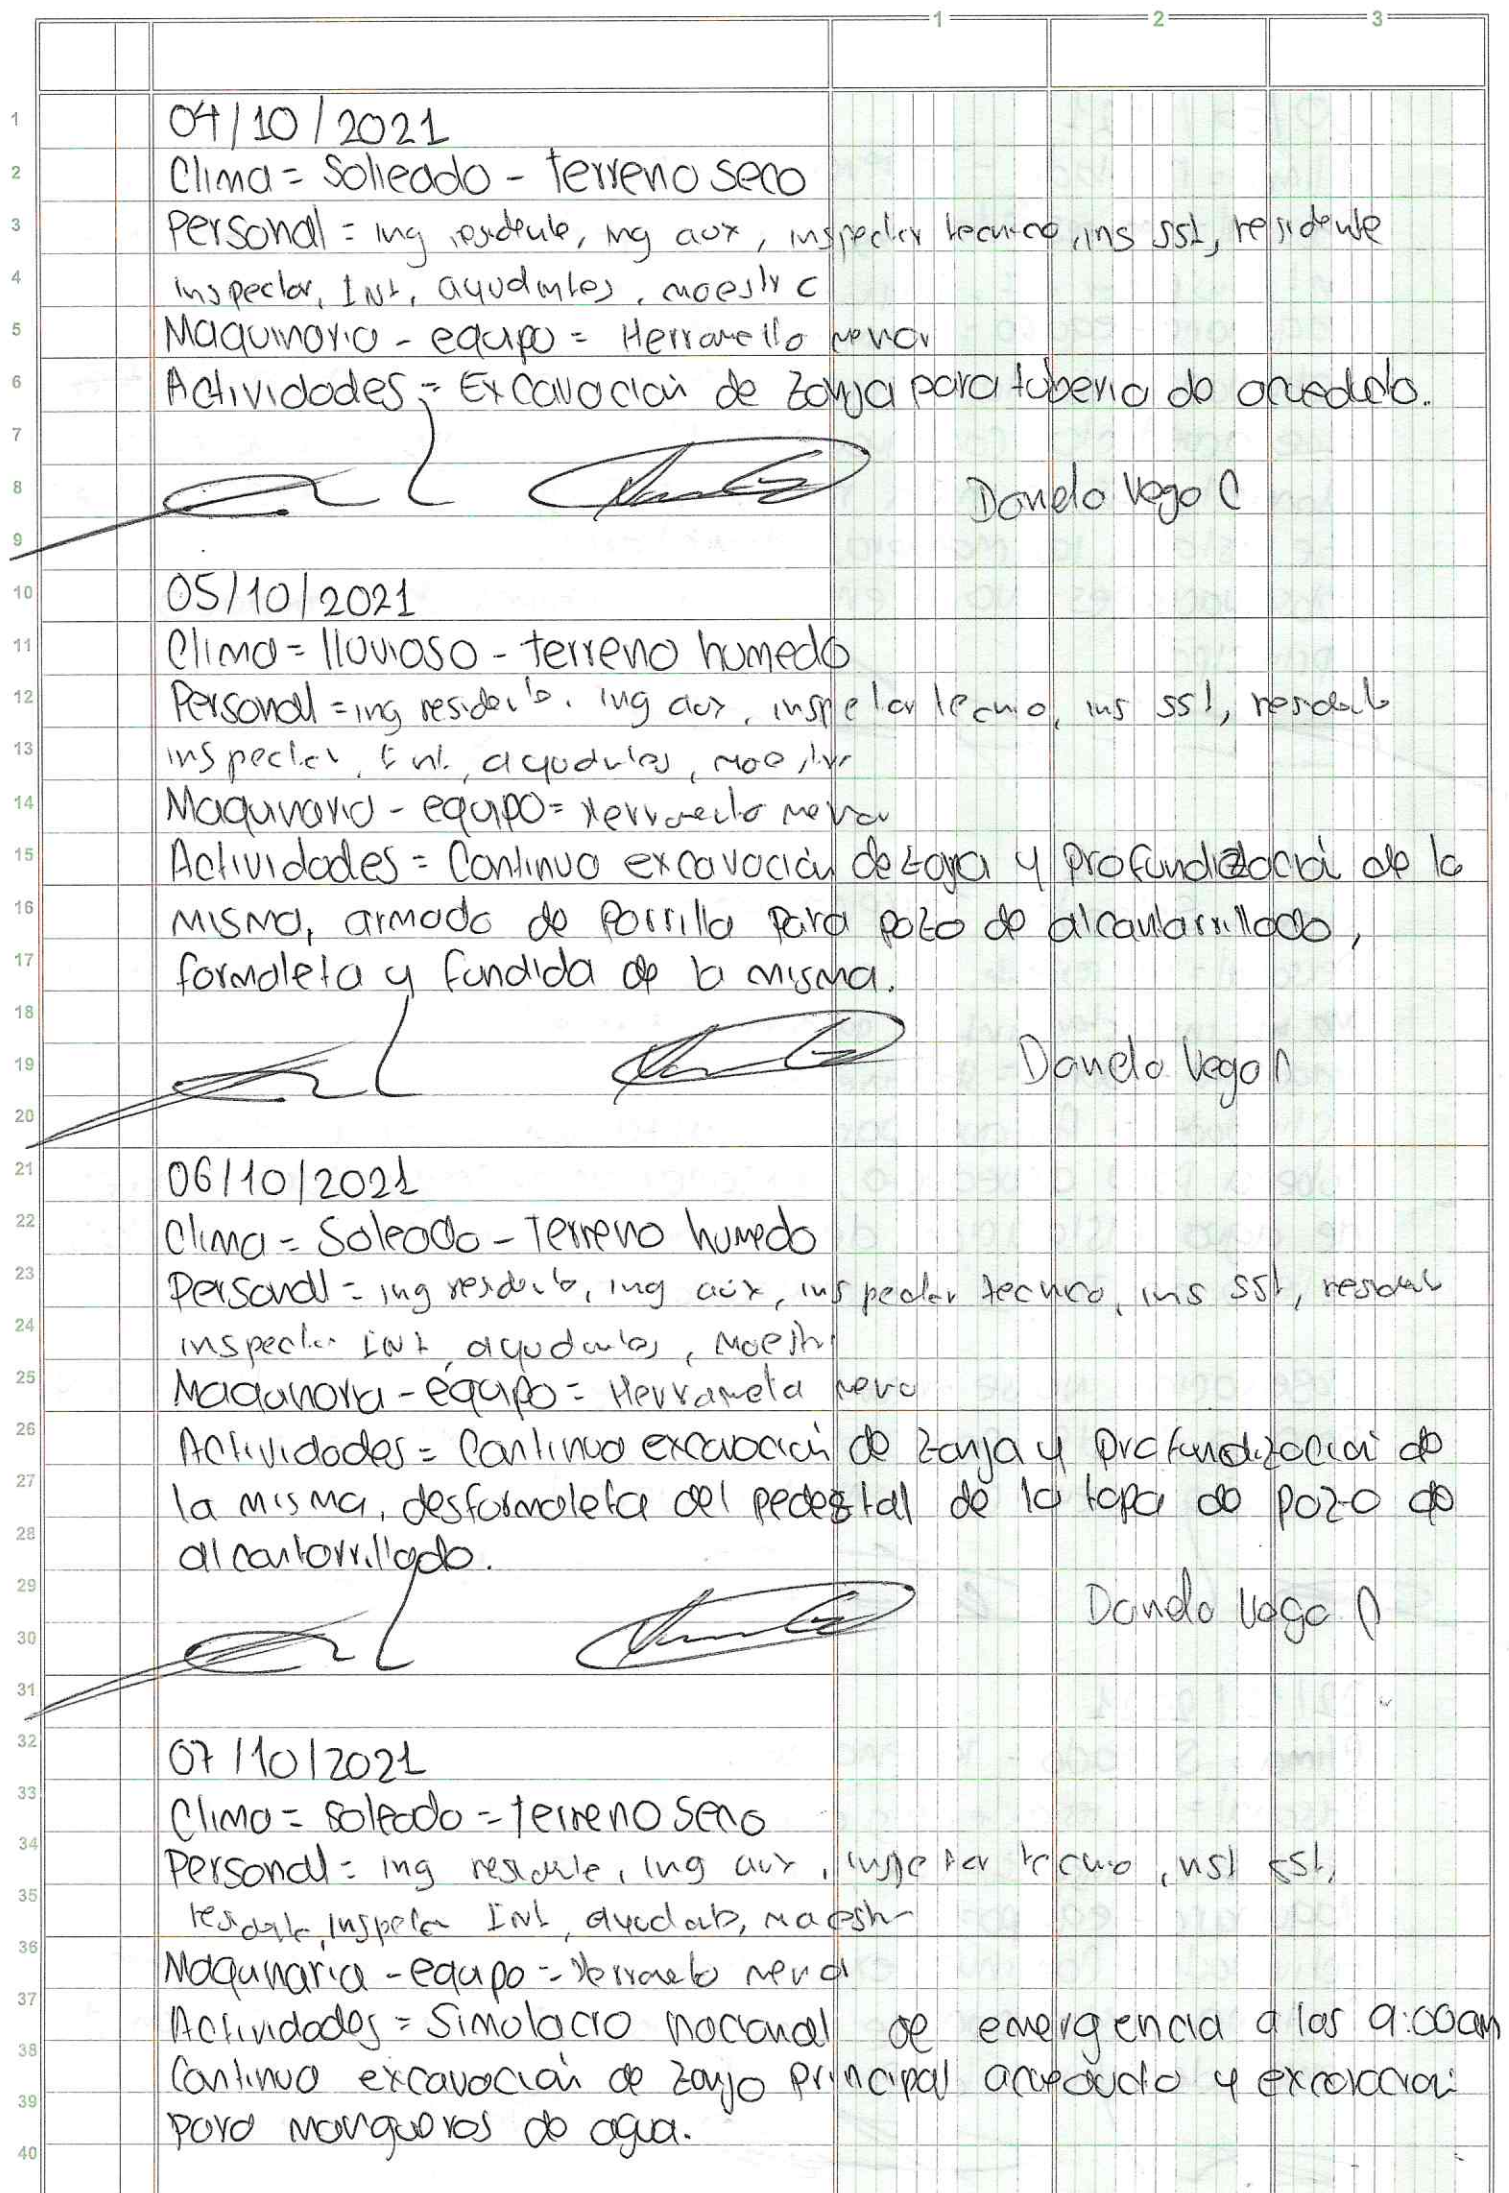 1 2 3
1 04/10/2021
2 Clima = Solleado - terreno seco
3 Personal = ing residente, ing aux, inspector tecnico, ins SST, residente
4 inspector, INT, ayudantes, maestro
5 Maquinaria - equipo = Herramienta menor
6 Actividades = Excavación de zanja para tuberia de acueducto.
7
8 Danelo Vega C
9
10 05/10/2021
11 Clima = lluvioso - terreno humedo
12 Personal = ing residente, ing aux, inspector tecnico, ins SST, residente
13 inspector, Int, ayudantes, maestro
14 Maquinaria - equipo = Herramienta menor
15 Actividades = Continuo excavación de zanja y profundización de la
16 misma, armado de parrilla para pozo de alcantarillado,
17 formaleta y fundida de la misma.
18
19 Danelo Vega C
20
21 06/10/2021
22 Clima = Soleado - Terreno humedo
23 Personal = ing residente, ing aux, inspector tecnico, ins SST, residente
24 inspector INT, ayudantes, maestro
25 Maquinaria - equipo = Herramienta menor
26 Actividades = Continuo excavación de zanja y profundización de
27 la misma, desformaleta del pedestal de la tapa de pozo de
28 alcantarrillado.
29 Danelo Vega C
30
31
32 07/10/2021
33 Clima = soleado = terreno seco
34 Personal = ing residente, ing aux, inspector tecnico, SST,
35 residente, inspector INT, ayudante, maestro
36 Maquinaria - equipo = Herramienta menor
37 Actividades = Simulacro nacional de emergencia a las 9:00am
38 Continuo excavación de zanja principal acueducto y excavación
39 para mangueras de agua.
40